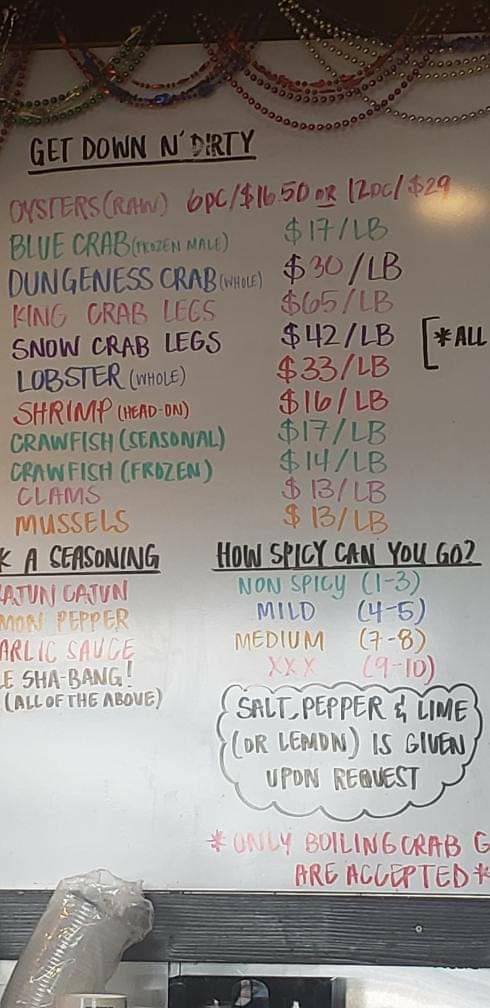 GET DOWN N' DIRTY
OYSTERS (RAW) 6PC/$16.50 OR 12PC/$29
BLUE CRAB (FROZEN MALE) $17/LB
DUNGENESS CRAB (WHOLE) $30/LB
KING CRAB LEGS $65/LB
SNOW CRAB LEGS $42/LB [*ALL
LOBSTER (WHOLE) $33/LB
SHRIMP (HEAD-ON) $16/LB
CRAWFISH (SEASONAL) $17/LB
CRAWFISH (FROZEN) $14/LB
CLAMS $13/LB
MUSSELS $13/LB
K A SEASONING
AJUN CAJUN
MON PEPPER
ARLIC SAUCE
E SHA-BANG!
(ALL OF THE ABOVE)
HOW SPICY CAN YOU GO?
NON SPICY (1-3)
MILD (4-5)
MEDIUM (7-8)
XXX (9-10)
SALT, PEPPER & LIME
(OR LEMON) IS GIVEN
UPON REQUEST
*ONLY BOILING CRAB G
ARE ACCEPTED*